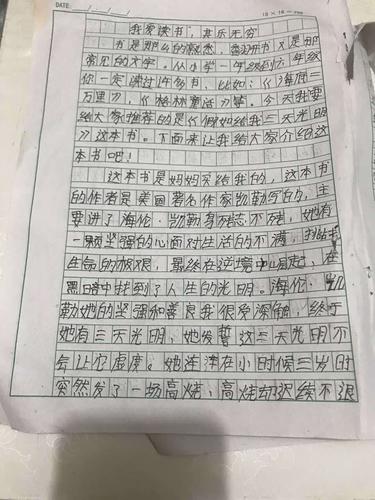 DATE:
18×16=
我爱读书,其乐无穷
书是那么的熟悉,翻开书又是那
常见的文字。从小学一年级到六年级
你一定读过许多书,比如:《海底三
万里》,《格林童话》等。今天我要
给大家推荐的是《假如给我三天光明
》这本书。下面来让我给大家介绍这
本书吧!
这本书是妈妈买给我的,这本书
的作者是美国著名作家凯勒写的,主
要讲了海伦·凯勒身残志不残,她有
一颗坚强的心面对生活的不满,挑战
生命的极艰,最终在逆境中崛起,在
黑暗中找到了人生的光明。海伦·凯
勒她的坚强和善良我很受深触,终于
她有三天光明,她发誓这三天光明不
会让它虚度。她连活在小时候三岁时
突然发了一场高烧,高烧却迟续不退